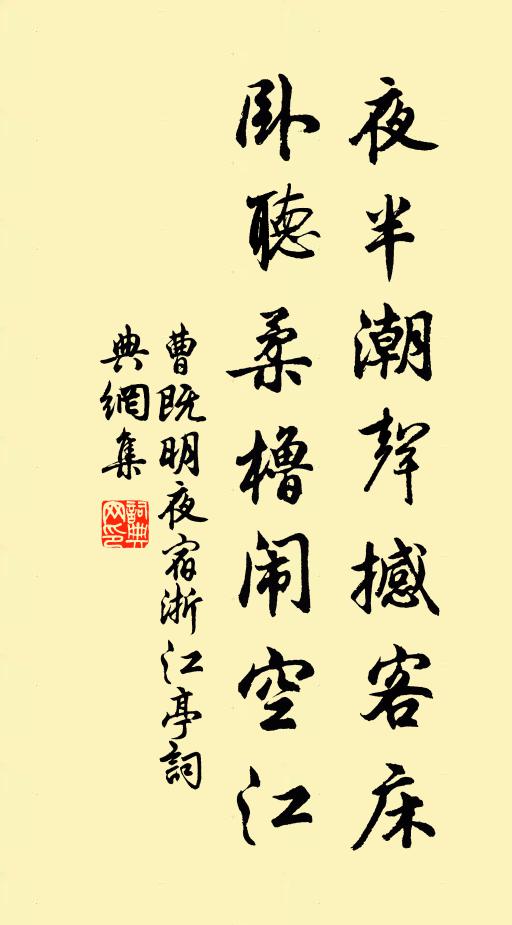 夜半潮聲撼客床
卧聽柔櫓闹空江
曹既明夜宿浙江亭詞
典網集
詞典网印